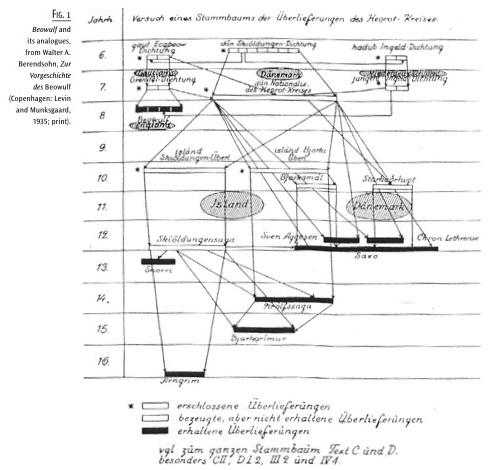 FIG. 1
Beowulf and
its analogues,
from Walter A.
Berendsohn, Zur
Vorgeschichte
des Beowulf
(Copenhagen: Levin
and Munksgaard,
1935; print).
Jahrh. Versuch eines Stammbaums der Überlieferungen des Heorot-Kreises.
gaut. Ecgþeow Dichtung
dän Skiöldungen-Dichtung
hadub Ingeld-Dichtung
6.
Dänemark
Grendel-Dichtung
dän Nationalis.
des Heorot-Kreises
7.
8
Beowulf
England
9.
isländ
Skiöldungen-Überl
isländ Bjarki
Überl
10.
Bjarkamal
11.
Island
Dänemark
12.
Skiöldungensaga
Sven Aggesen
Chron Lethrense
Saxo
13.
Snorri
14.
Hrolfssaga
15.
Bjarkarimur
16.
Arngrim
* erschlossene Überlieferüngen
bezeugte, aber nicht erhaltene Überlieferüngen
erhaltene Überlieferüngen
vgl zům ganzen Stammbaům Text C. ůnd D.
besonders CII, DI2, III2 ůnd IV4.